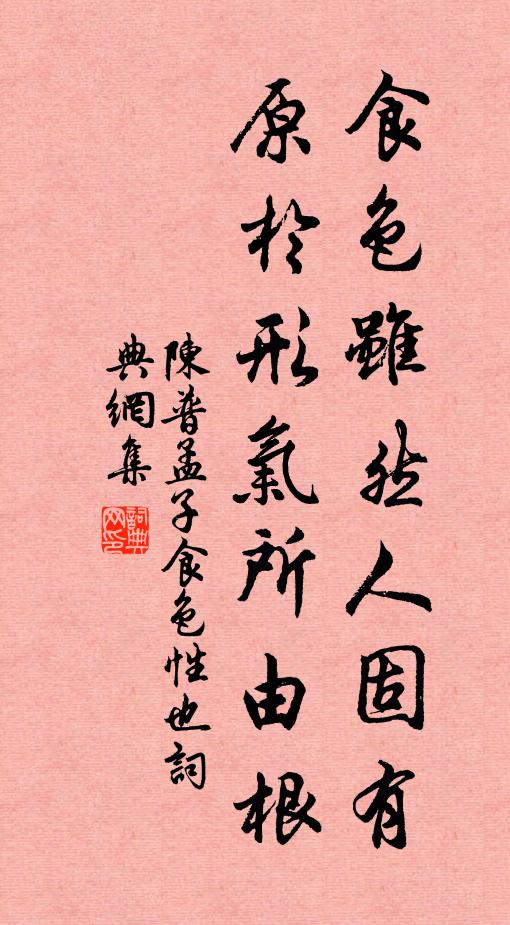 食色雖然人固有
原於形氣所由根
陳普孟子食色性也詞
典網集
詞典
网印